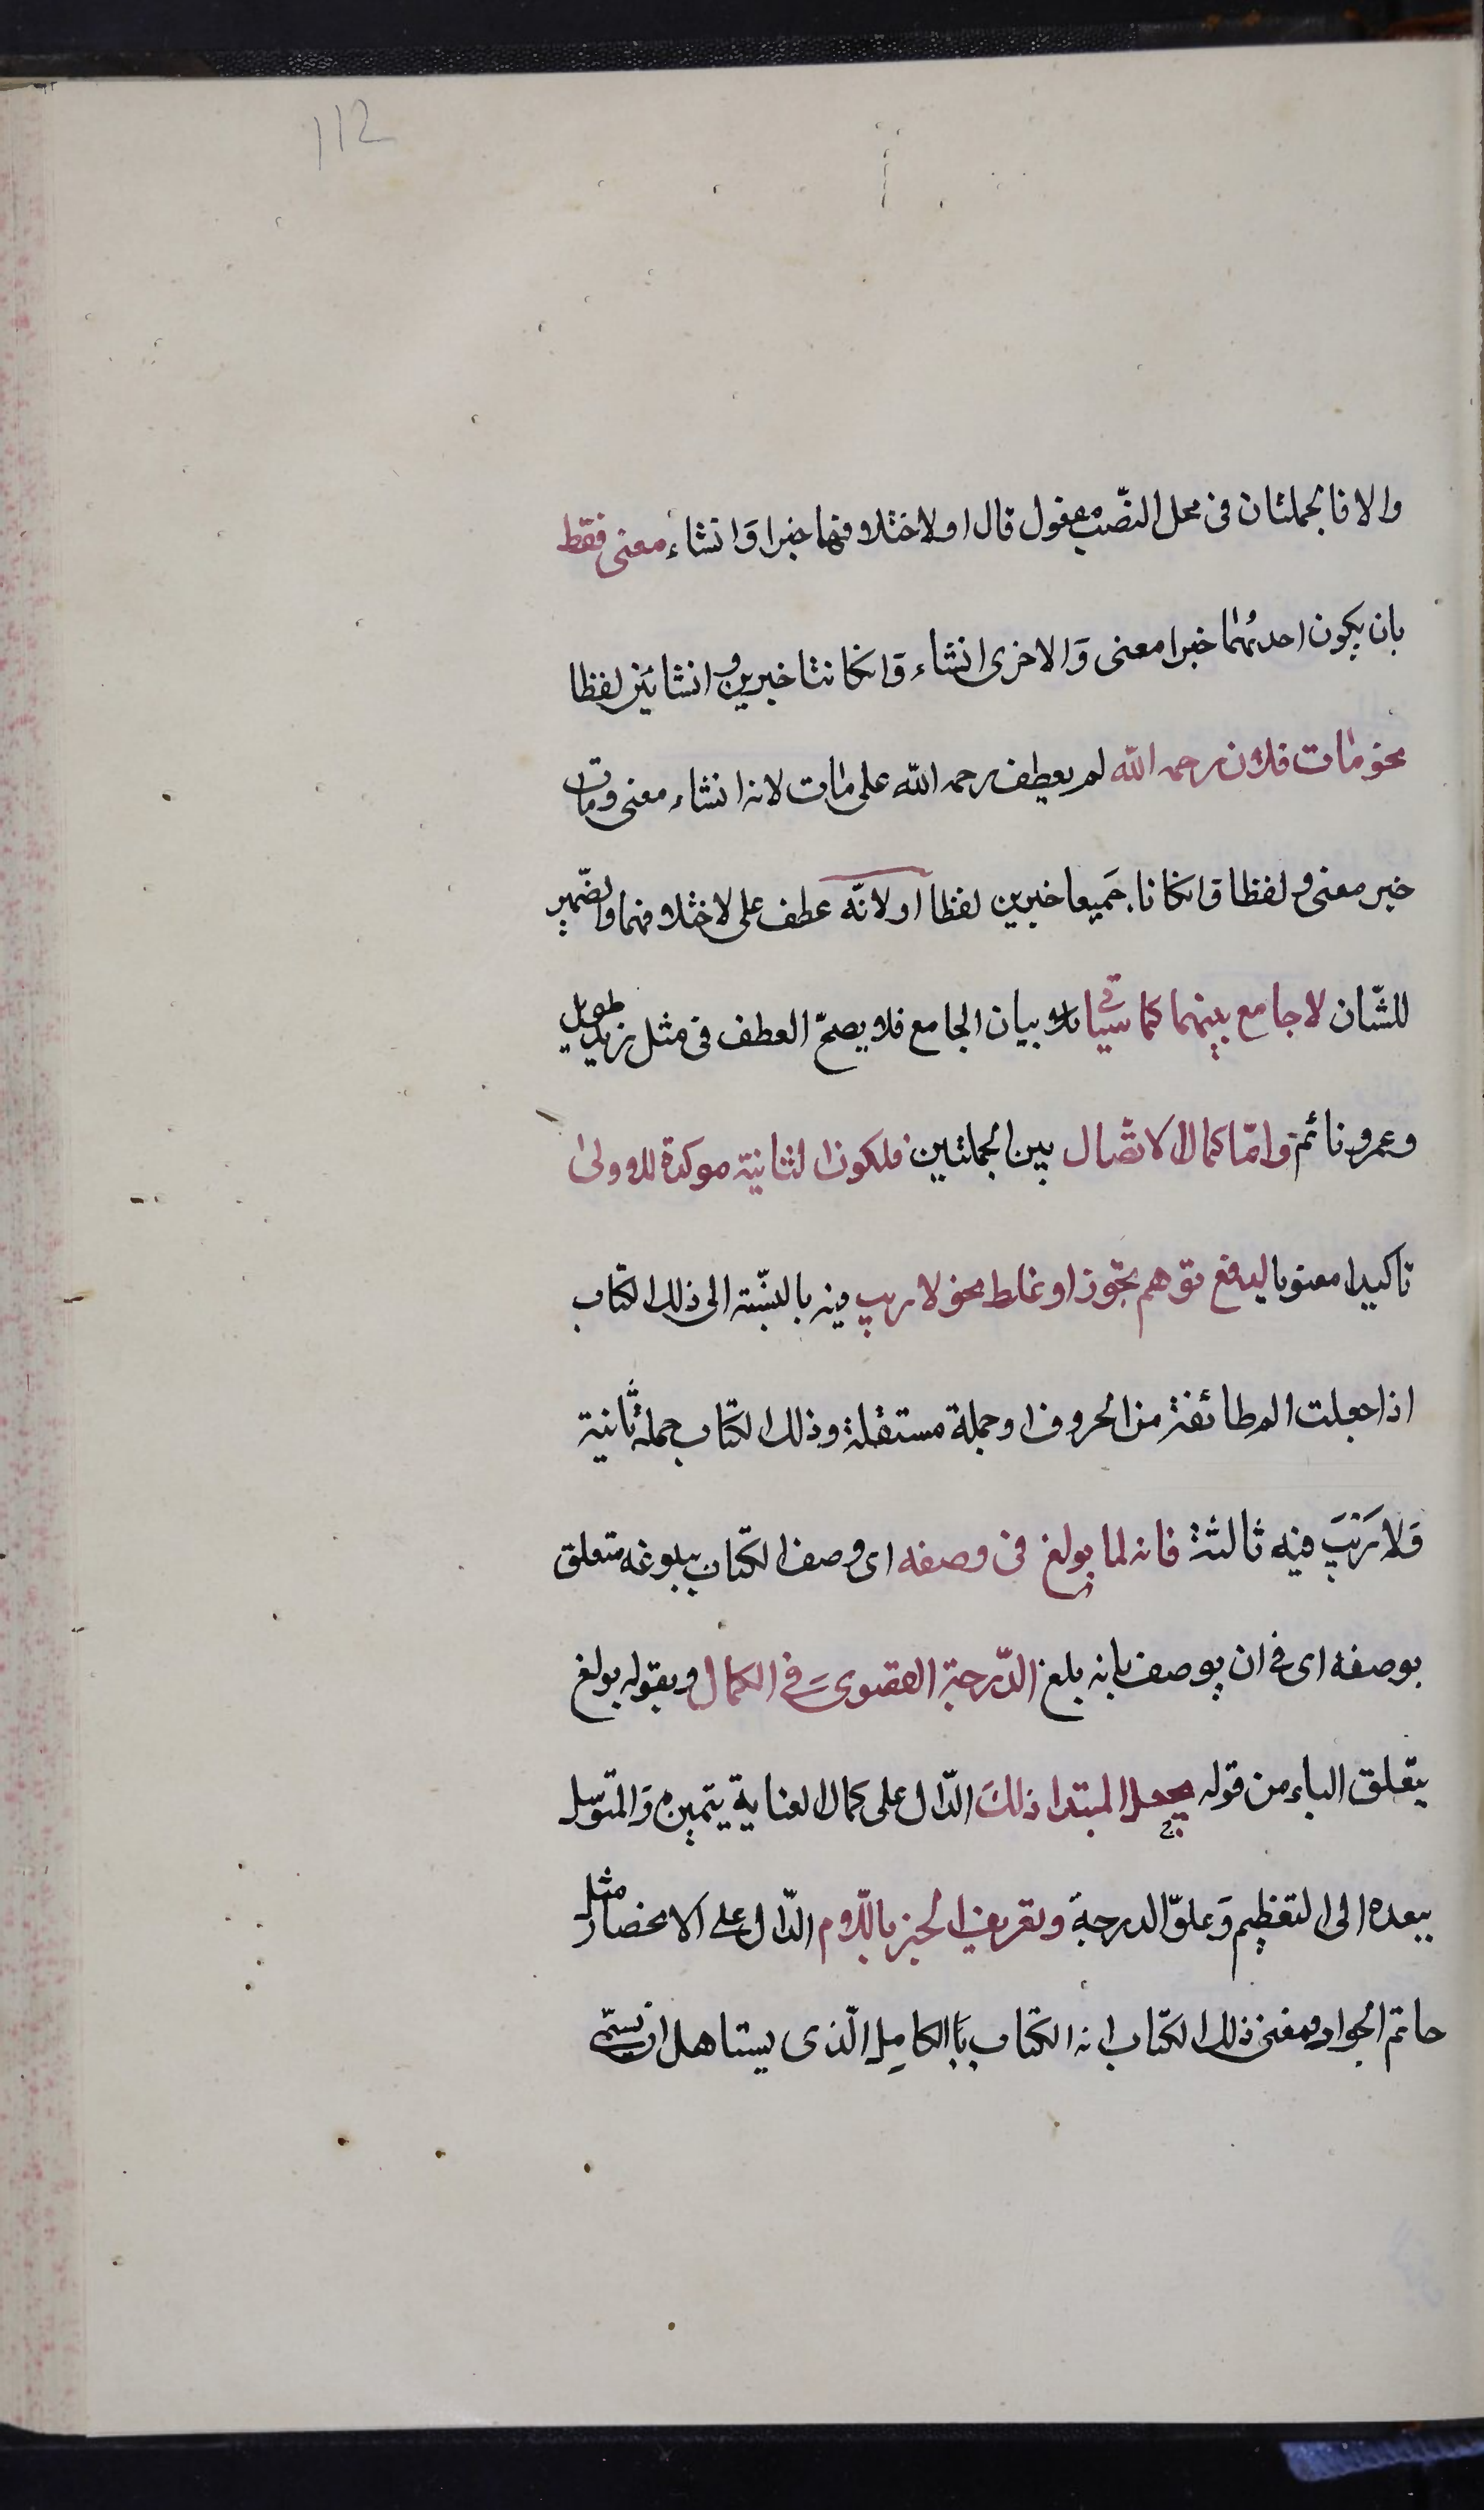 112
والا فالجملتان فى محل النصّب مفعول قال او لاختلافهما خبرا وَانشاء معنى فقط
بان يكون احدٰيهما خبرا معنى وَالاخرى انشاء وَانكانتا خبرين او انشائين لفظا
نحو مٰات فلان رحمه الله لم يعطف رحمه الله على مٰات لانه انشاء معنى ومٰات
خبر معنى ولفظا وانكانا جَميعا خبرين لفظا او لانّه عطف على لاختلافهما والضّمير
للشّان لا جامع بينهما كما سياتى بيان الجامع فلا يصحّ العطف فى مثل زيد طويل
وعمرو نائم وامّا كمال الاتّصال بين الجملتين فلكون الثانية موكدة للاولىٰ
تاكيدا معنويا لدفع توهم تجوّز او غلط نحو لا ريب فيه بالنسّبة الى ذلك الكتاب
اذا جعلت الم طائفة من الحروف او جملة مستقلة وذلك الكتاب جملة ثانية
وَلا رَيْبَ فيه ثالثة فانه لما بولغ فى وصفه اى وصف الكتاب ببلوغه متعلق
بوصفه اى فى ان يوصف بانه بلغ الدّرجة القصوى فى الكمال وبقوله بولغ
يتعلق الباء من قوله بجعل المبتدا ذلكَ الدّال على كمال العناية بتميزه وَالتوسّل
ببعده الى التعظيم وَعلوّ الدرجة وتعريف الخبر باللّام الدّال على الانحصار مثل
حاتم الجواد ومعنى ذلك الكتاب انه الكتاب با الكامل الّذى يستاهل ان يسمّى